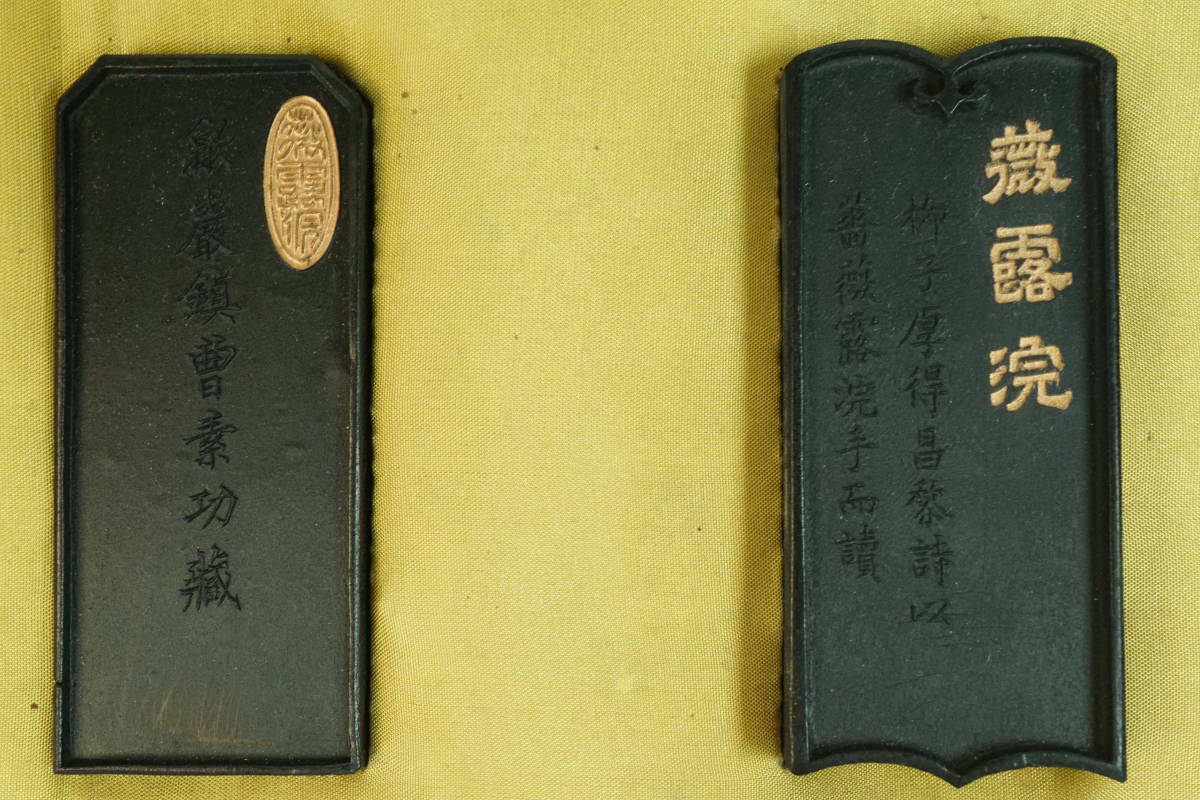 薇露浣
柳子厚得昌黎詩以
薔薇露浣手而讀
歙巖鎮曹素功藏